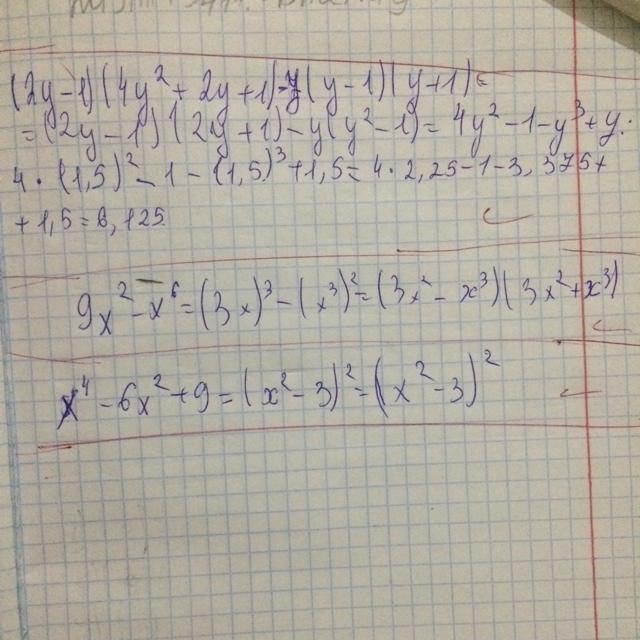 (2y-1)(4y²+2y+1)-y(y-1)(y+1)=
=(2y-1)(2y+1)-y(y²-1)=4y²-1-y³+y.
4·(1,5)²-1-(1,5)³+1,5=4·2,25-1-3,375+
+1,5=6,125
9x²-x⁶=(3x)³-(x³)²=(3x²-x³)(3x²+x³)
x⁴-6x²+9=(x²-3)²=(x²-3)²